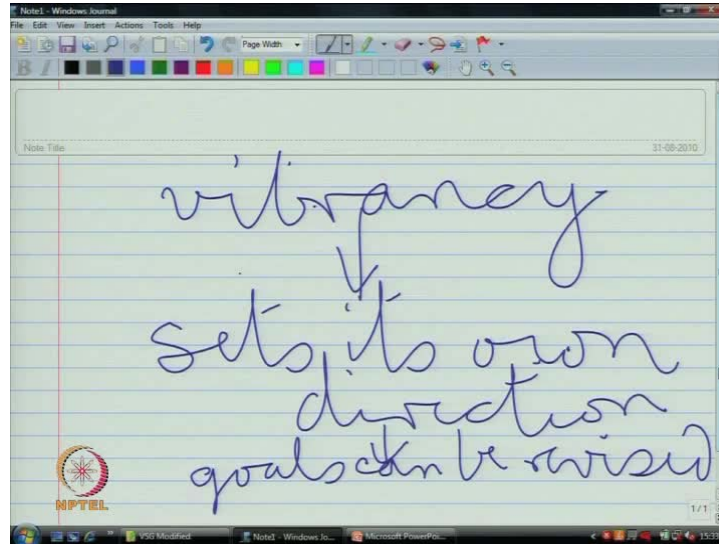 Note1 - Windows Journal
File Edit View Insert Actions Tools Help
Page Width
B I
Note Title
31-08-2010
vibrancy
sets its own
direction
goals can be revised
NPTEL
1/1
VSG Modified
Note1 - Windows Jo...
Microsoft PowerPoi...
15:33